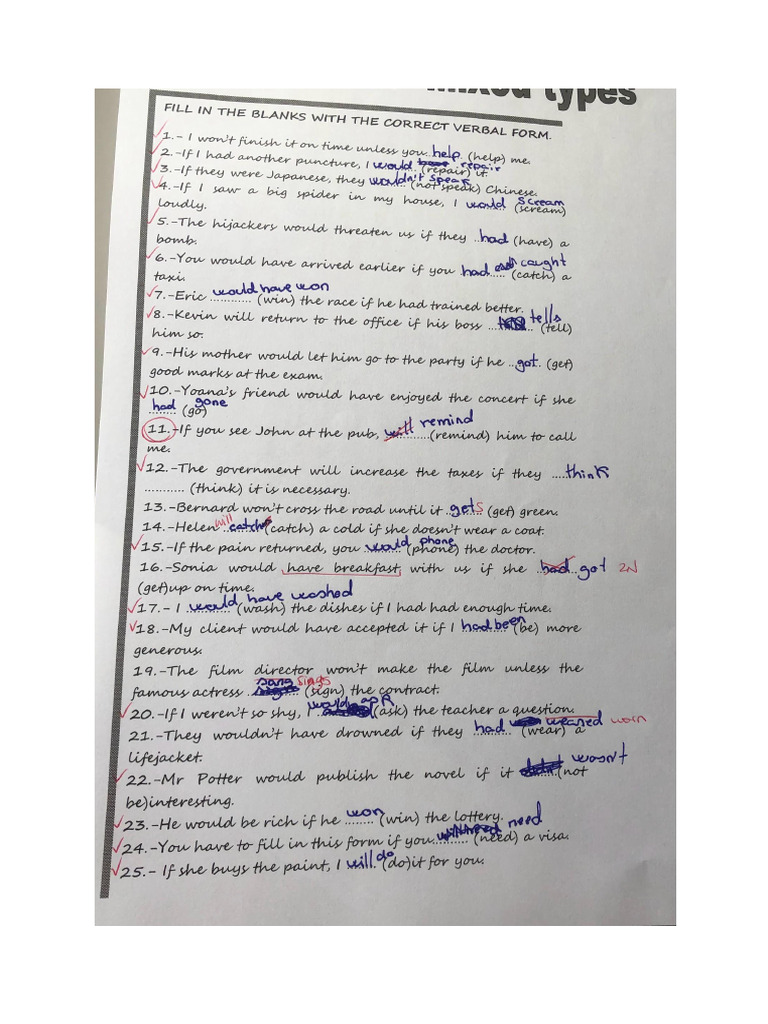 Mixed types
FILL IN THE BLANKS WITH THE CORRECT VERBAL FORM.
1.- I won't finish it on time unless you help (help) me.
2.-If I had another puncture, I would repair (repair) it.
3.-If they were Japanese, they wouldn't speak (not speak) Chinese.
4.-If I saw a big spider in my house, I would scream (scream)
loudly.
5.-The hijackers would threaten us if they had (have) a
bomb.
6.-You would have arrived earlier if you had caught (catch) a
taxi.
7.-Eric would have won (win) the race if he had trained better.
8.-Kevin will return to the office if his boss tells (tell)
him so.
9.-His mother would let him go to the party if he got (get)
good marks at the exam.
10.-Yoana's friend would have enjoyed the concert if she
had gone (go)
11.-If you see John at the pub, will remind (remind) him to call
me.
12.-The government will increase the taxes if they think
(think) it is necessary.
13.-Bernard won't cross the road until it gets (get) green.
14.-Helen will catch (catch) a cold if she doesn't wear a coat.
15.-If the pain returned, you would phone (phone) the doctor.
16.-Sonia would have breakfast with us if she had got
(get)up on time.
17.- I would have washed (wash) the dishes if I had had enough time.
18.-My client would have accepted it if I had been (be) more
generous.
19.-The film director won't make the film unless the
famous actress sang sings (sign) the contract.
20.-If I weren't so shy, I would ask (ask) the teacher a question.
21.-They wouldn't have drowned if they had weared worn (wear) a
lifejacket.
22.-Mr Potter would publish the novel if it wasn't (not
be)interesting.
23.-He would be rich if he won (win) the lottery.
24.-You have to fill in this form if you need (need) a visa.
25.- If she buys the paint, I will do (do)it for you.